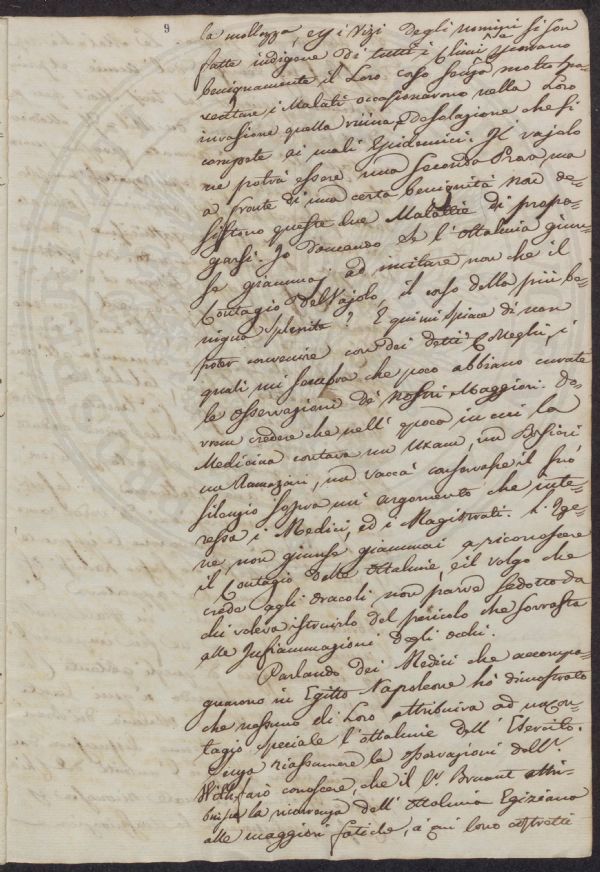 9
la mollezza, ed i Vizi degli uomini si son
fatte indigene di tutti i Climi
benignamente il Loro corso senza molto
i Malati occasionarono nella Loro
invasione quella rovina, e desolazione che si
compete ai mali Epidemici. Il vajolo
ne potrà essere una seconda Prova, ma
a fronte di una certa benignità non de=
sistono queste due Malattie di propa=
garsi. Io domando se l'Ottalmia giun=
se giammai ad imitare non che il
Contagio del Vajolo, il corso della più be=
nigna ? E quì mi spiace di non
poter convenire con dei detti Colleghi, i
quali mi sembra che poco abbiano curate
le osservazioni de' nostri Maggiori. Do=
vrem credere che nell'epoca in cui la
Medicina contava un , un
un Ramazzini, un Vaccà conservasse il suo
silenzio sopra un' argomento che inte=
ressa i Medici, ed i Magistrati. L'Ige=
ne non giunse giammai a riconoscere
il Contagio delle Ottalmie, e il volgo che
crede agli oracoli non parve sedotto da
chi voleva istruirlo del pericolo che sovrasta
alle Infiammazioni degli occhi.
Parlando dei Medici che accompa=
gnarono in Egitto Napoleone hò dimostrato
che nessuno di Loro attribuiva ad un Con=
tagio speciale l'ottalmie dell'Esercito.
Senza riassumere le osservazioni dell'
farò conoscere, che il Sr. Bruant attri=
buisce la ricorrenza dell'Ottalmia Egiziana
alle maggiori fatiche, a cui sono astretti